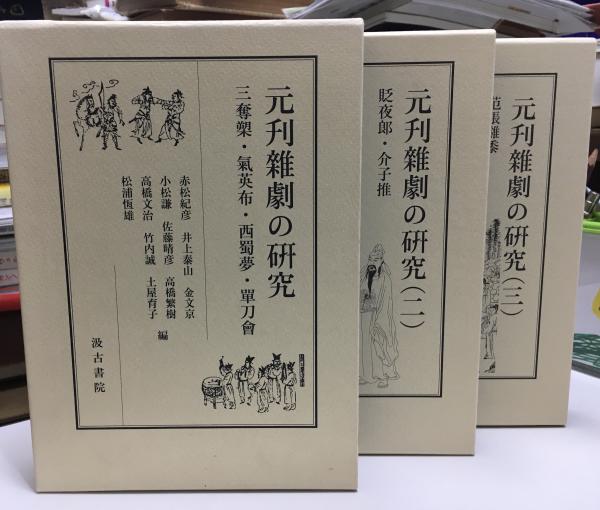 元刊雜劇の研究
三奪槊・氣英布・西蜀夢・單刀會
赤松紀彦 井上泰山 金文京
小松謙 佐藤晴彦 高橋繁樹
高橋文治 竹内誠 土屋育子 編
松浦恆雄
汲古書院
元刊雜劇の研究(二)
貶夜郎・介子推
元刊雜劇の研究(三)
范張雞黍